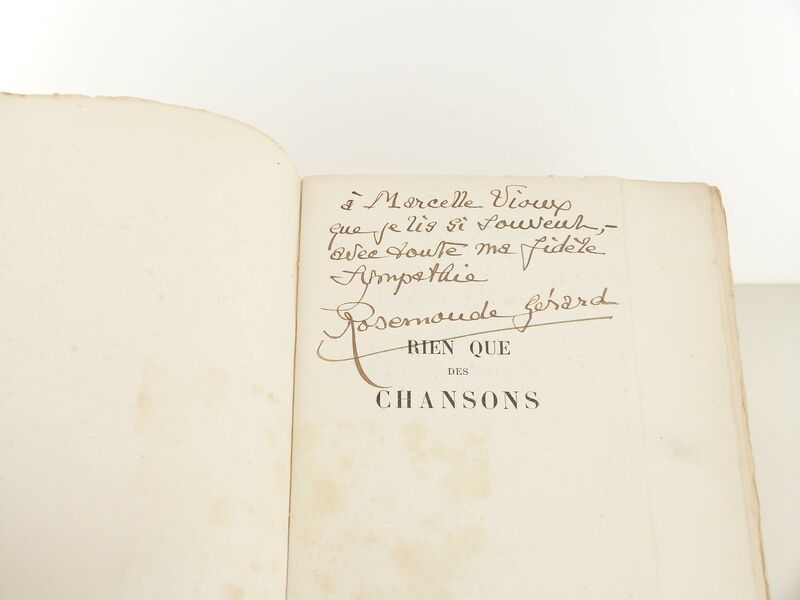 à Marcelle Vioux
que je lis si souvent,-
avec toute ma fidèle
sympathie
Rosemonde Gérard
RIEN QUE
DES
CHANSONS